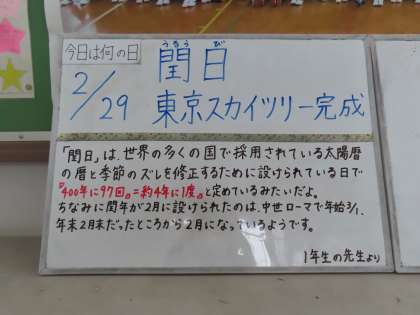 今日は何の日
うるうび
2/29 閏日
東京スカイツリー完成
「閏日」は、世界の多くの国で採用されている太陽暦
の暦と季節のズレを修正するために設けられている日で
『400年に97回』=約4年に1度。と定めているみたいだよ。
ちなみに閏年が2月に設けられたのは、中世ローマで年始3/1、
年末2月末だったところから2月になっているようです。
1年生の先生より